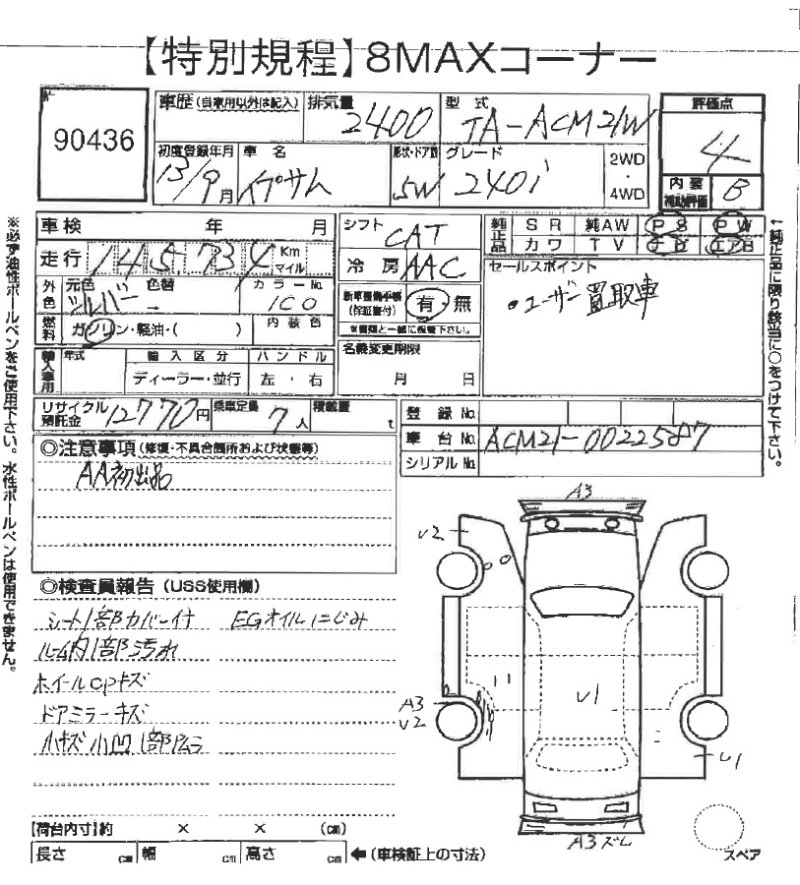 【特別規程】8MAXコーナー
90436
車歴(自家用以外は記入)
排気量 2400
型式 TA-ACM21W
評価点 4
初度登録年月 13/9月
車名 イプサム
形状・ドア数 5W
グレード 240i
2WD・4WD
内装補助評価 B
車検 年 月
シフト CAT
純正品 SR 純AW PS PW
カワ TV ナビ エアB
走行 145,734 Km マイル
冷房 AAC
セールスポイント
・ユーザー買取車
外色 元色 シルバー 色替 → カラーNo. 1C0
新車整備手帳(保証書付) 有・無
燃料 ガソリン・軽油・( ) 内装色
輸入車用 年式 輸入区分 ハンドル
ディーラー・並行 左・右
名義変更期限
月 日
リサイクル預託金 12770円 乗車定員 7人 積載量 t
登録No.
車台No. ACM21-0022587
シリアルNo.
◎注意事項(修復・不具合箇所および状態等)
AA初出品
◎検査員報告(USS使用欄)
シート1部カバー付 EGオイルにじみ
ルーム内1部汚れ
ホイールcpキズ
ドアミラーキズ
小キズ小凹1部ムラ
A3
U2
A3
U2
U1
U1
A3ズレ
スペア
【荷台内寸】約 × × (cm)
長さ cm 幅 cm 高さ cm ←(車検証上の寸法)
※必ず油性ボールペンをご使用下さい。水性ボールペンは使用できません。
↑純正品に限り該当に○をつけて下さい。